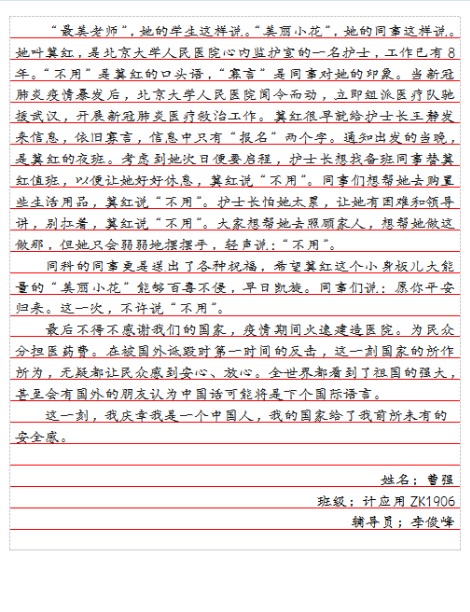 “最美老师”，她的学生这样说。“美丽小花”，她的同事这样说。
她叫冀红，是北京大学人民医院心内监护室的一名护士，工作已有 8
年。“不用”是冀红的口头语，“寡言”是同事对她的印象。当新冠
肺炎疫情暴发后，北京大学人民医院闻令而动，立即组派医疗队驰
援武汉，开展新冠肺炎医疗救治工作。冀红很早就给护士长王静发
来信息，依旧寡言，信息中只有“报名”两个字。通知出发的当晚，
是冀红的夜班。考虑到她次日便要启程，护士长想找备班同事替冀
红值班，以便让她好好休息，冀红说“不用”。同事们想帮她去购置
些生活用品，冀红说“不用”。护士长怕她太累，让她有困难和领导
讲，别扛着，冀红说“不用”。大家想帮她去照顾家人，想帮她做这
做那，但她只会弱弱地摆摆手，轻声说：“不用”。
同科的同事更是送出了各种祝福，希望冀红这个小身板儿大能
量的“美丽小花”能够百毒不侵，早日凯旋。同事们说：愿你平安
归来。这一次，不许说“不用”。
最后不得不感谢我们的国家，疫情期间火速建造医院。为民众
分担医药费。在被国外诋毁时第一时间的反击，这一刻国家的所作
所为，无疑都让民众感到安心、放心。全世界都看到了祖国的强大，
甚至会有国外的朋友认为中国话可能将是下个国际语言。
这一刻，我庆幸我是一个中国人，我的国家给了我前所未有的
安全感。
姓名：曹强
班级：计应用 ZK1906
辅导员：李俊峰